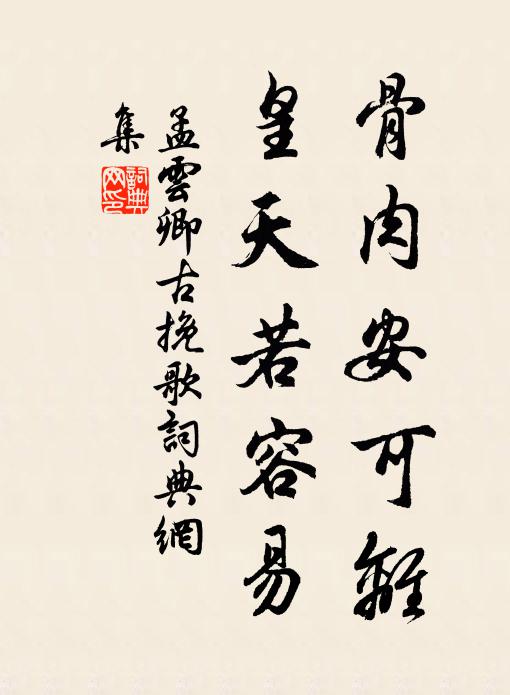 骨肉安可離
皇天若容易
孟雲卿古挽歌詞典網
集
詞典網印